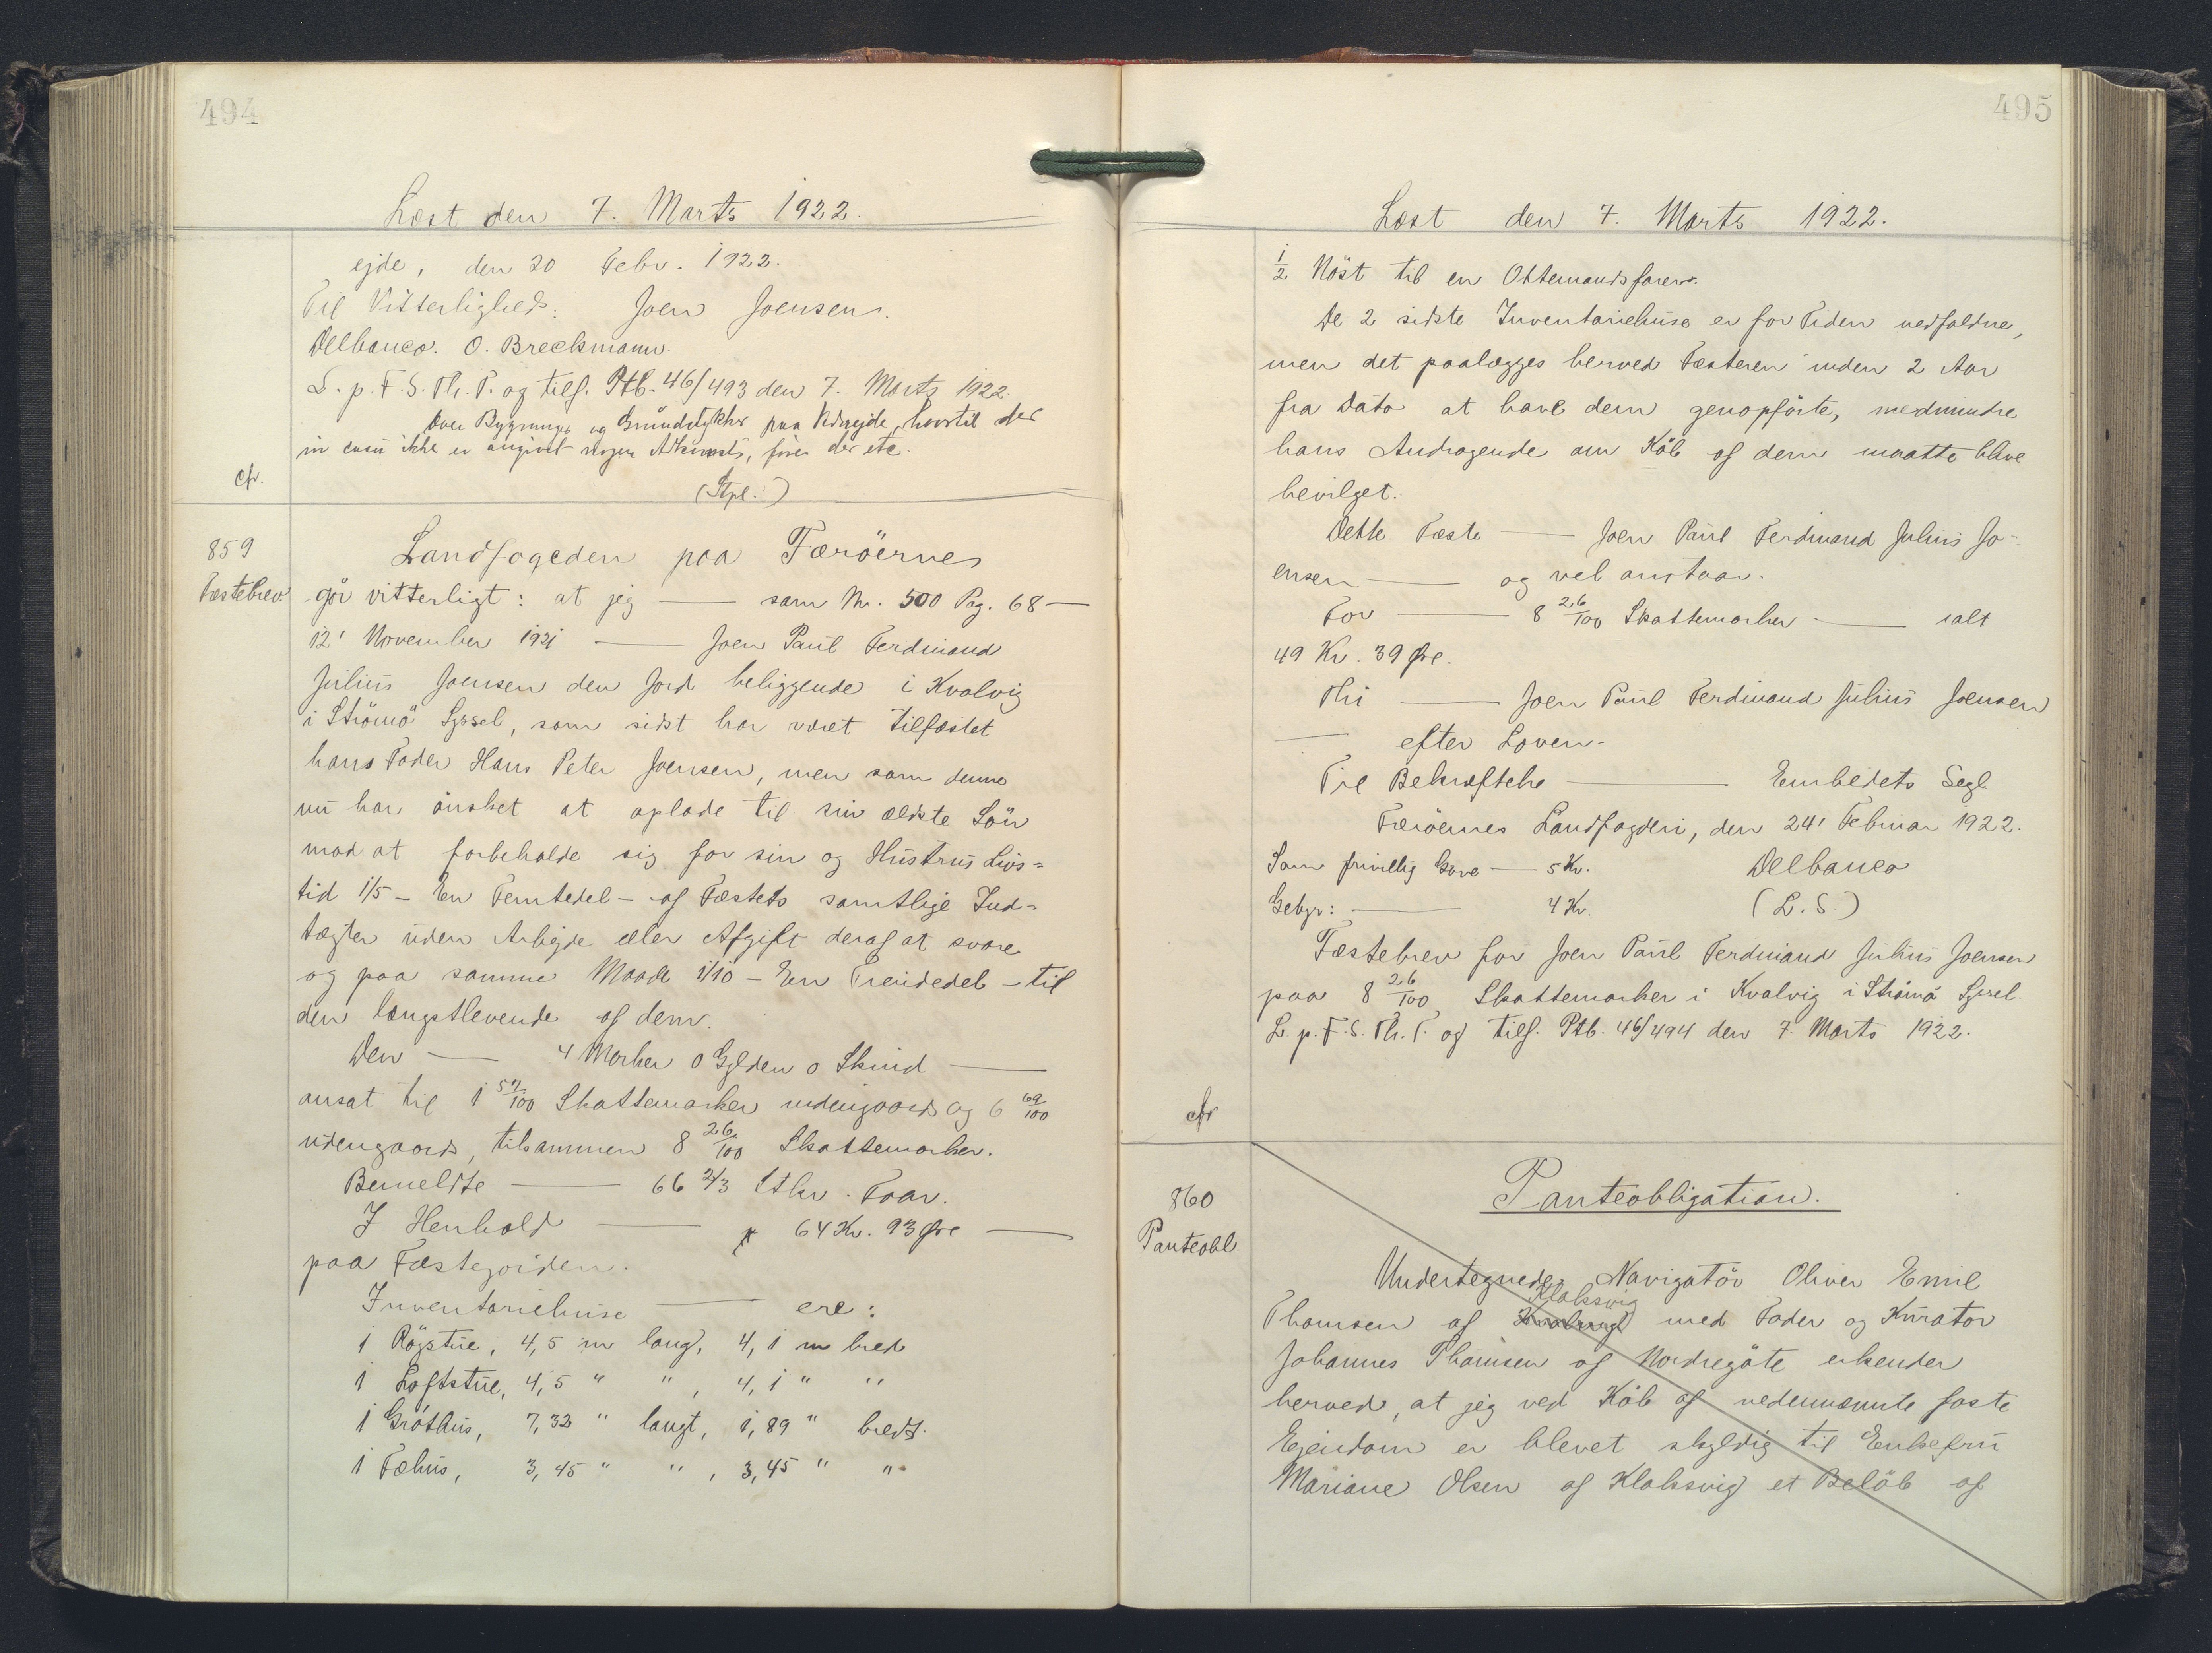 494
Læst den 7. Marts 1922.
ejde, den 20 Febr. 1922.
Til Vitterlighed: Joen Joensen.
Delbanco. O. Breckmann.
L. p. F. S. Th. T. og tilf. Ptb. 46/493 den 7. Marts 1922.
Over Bygninger og Grundstykker paa Viderejde, hvortil der
in casu ikke er angivet nogen Adkomst, föres der etc.
cfr.
(Stpl.)
859
Fæstebrev
Landfogeden paa Færöerne
gör vitterligt: at jeg — som Nr. 500 Pag. 68 —
12' November 1921 — Joen Paul Ferdinand
Julius Joensen den Jord beliggende i Kvalvig
i Strömö Syssel, som sidst har været tilfæstet
hans Fader Hans Peter Joensen, men som denne
nu har önsket at oplade til sin ældste Sön
mod at forbeholde sig for sin og Hustrus Livs=
tid 1/5 - En Femtedel - af Fæstets samtlige Ind=
tægter uden Arbejde eller Afgift deraf at svare
og paa samme Maade 1/10 - En Tiendedel - til
den længstlevende af dem.
Den — 4 Marker 0 Gylden 0 Skind —
ansat til 1 57/100 Skattemarker indengaards og 6 69/100
udengaards, tilsammen 8 26/100 Skattemarker.
Bemeldte — 66 2/3 Stkr. Faar.
I Henhold — 64 Kr. 93 Øre —
paa Fæstegaarden.
Inventariehuse — ere:
1 Rögstue, 4,5 m lang, 4,1 m bred
1 Loftstue, 4,5 " ", 4,1 " "
1 Gróthus, 7,32 " langt, 1,89 " bredt.
1 Fæhus, 3,45 " ", 3,45 " "
495
Læst den 7. Marts 1922.
1/2 Nöst til en Ottemandsfarer.
De 2 sidste Inventariehuse er for Tiden nedfaldne,
men det paalægges herved Fæsteren inden 2 Aar
fra Dato at have dem genopförte, medmindre
hans Andragende om Köb af dem maatte blive
bevilget.
Dette Fæste — Joen Paul Ferdinand Julius Jo-
ensen — og vel anstaar.
For — 8 26/100 Skattemarker — ialt
49 Kr. 39 Øre.
Thi — Joen Paul Ferdinand Julius Joensen
— efter Loven.
Til Bekræftelse — Embedets Segl
Færöernes Landfogderi, den 24' Februar 1922.
Som frivillig Gave — 5 Kr. Delbanco
Gebyr: — 4 Kr. (L. S.)
Fæstebrev for Joen Paul Ferdinand Julius Joensen
paa 8 26/100 Skattemarker i Kvalvig i Strömö Syssel.
L. p. F. S. Th. T. og tilf. Ptb. 46/494 den 7. Marts 1922.
cfr
860
Panteobl.
Panteobligation.
Undertegnede Navigatör Oliver Emil
Klaksvig
Thomsen af Kvalvig med Fader og Kurator
Johannes Thomsen af Nordregöte erkender
herved, at jeg ved Köb af nedennævnte faste
Ejendom er blevet skyldig til Enkefru
Mariane Olsen af Klaksvig et Belöb af